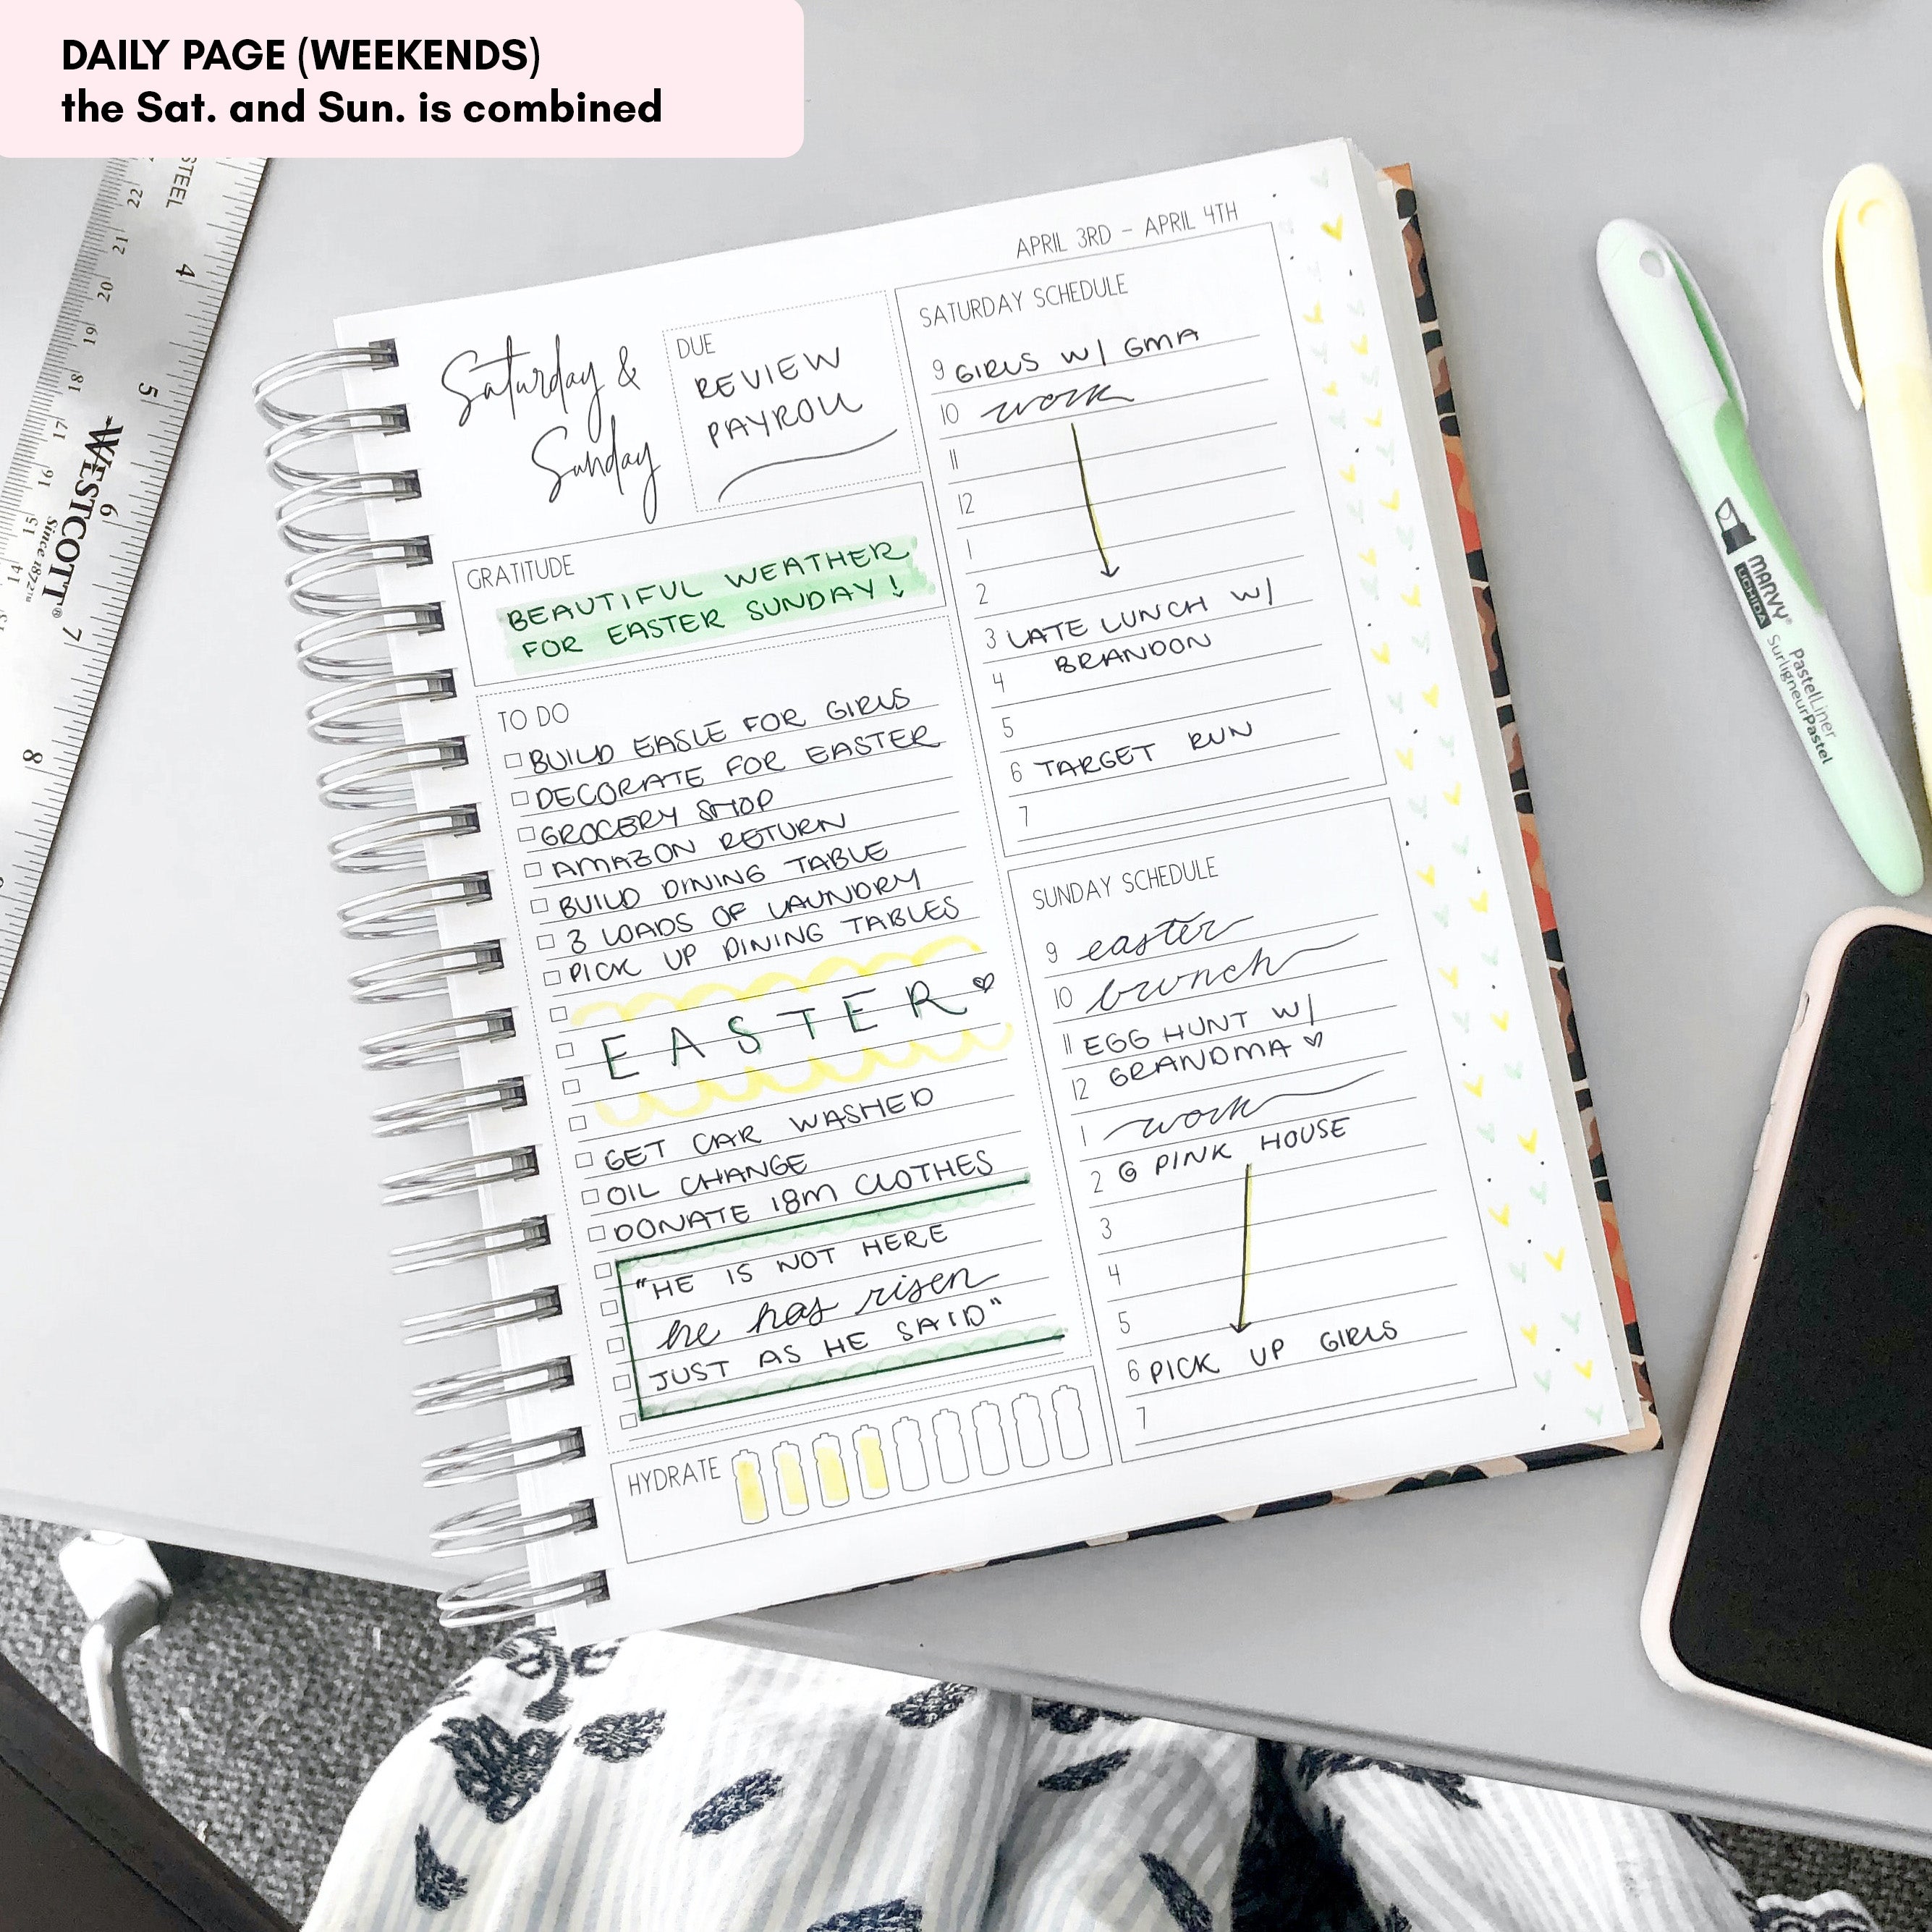 DAILY PAGE (WEEKENDS)
the Sat. and Sun. is combined
APRIL 3RD - APRIL 4TH
Saturday &
Sunday
DUE
REVIEW
PAYROLL
GRATITUDE
BEAUTIFUL WEATHER
FOR EASTER SUNDAY!
TO DO
BUILD EASLE FOR GIRLS
DECORATE FOR EASTER
GROCERY SHOP
AMAZON RETURN
BUILD DINING TABLE
3 LOADS OF LAUNDRY
PICK UP DINING TABLES
EASTER
GET CAR WASHED
OIL CHANGE
DONATE 18M CLOTHES
"HE IS NOT HERE
he has risen
JUST AS HE SAID"
HYDRATE
SATURDAY SCHEDULE
9 GIRLS W/ GMA
10 work
11
12
1
2
3 LATE LUNCH W/
BRANDON
4
5
6 TARGET RUN
7
SUNDAY SCHEDULE
9 easter
10 brunch
11 EGG HUNT W/
12 GRANDMA
1 work
2 @ PINK HOUSE
3
4
5
6 PICK UP GIRLS
7
STEEL
22
21
20
19
18
17
16
15
14
4
5
6
7
8
WESTCOTT®
Since 1872™
MARVY®
UCHIDA
PastelLiner
SurligneurPastel